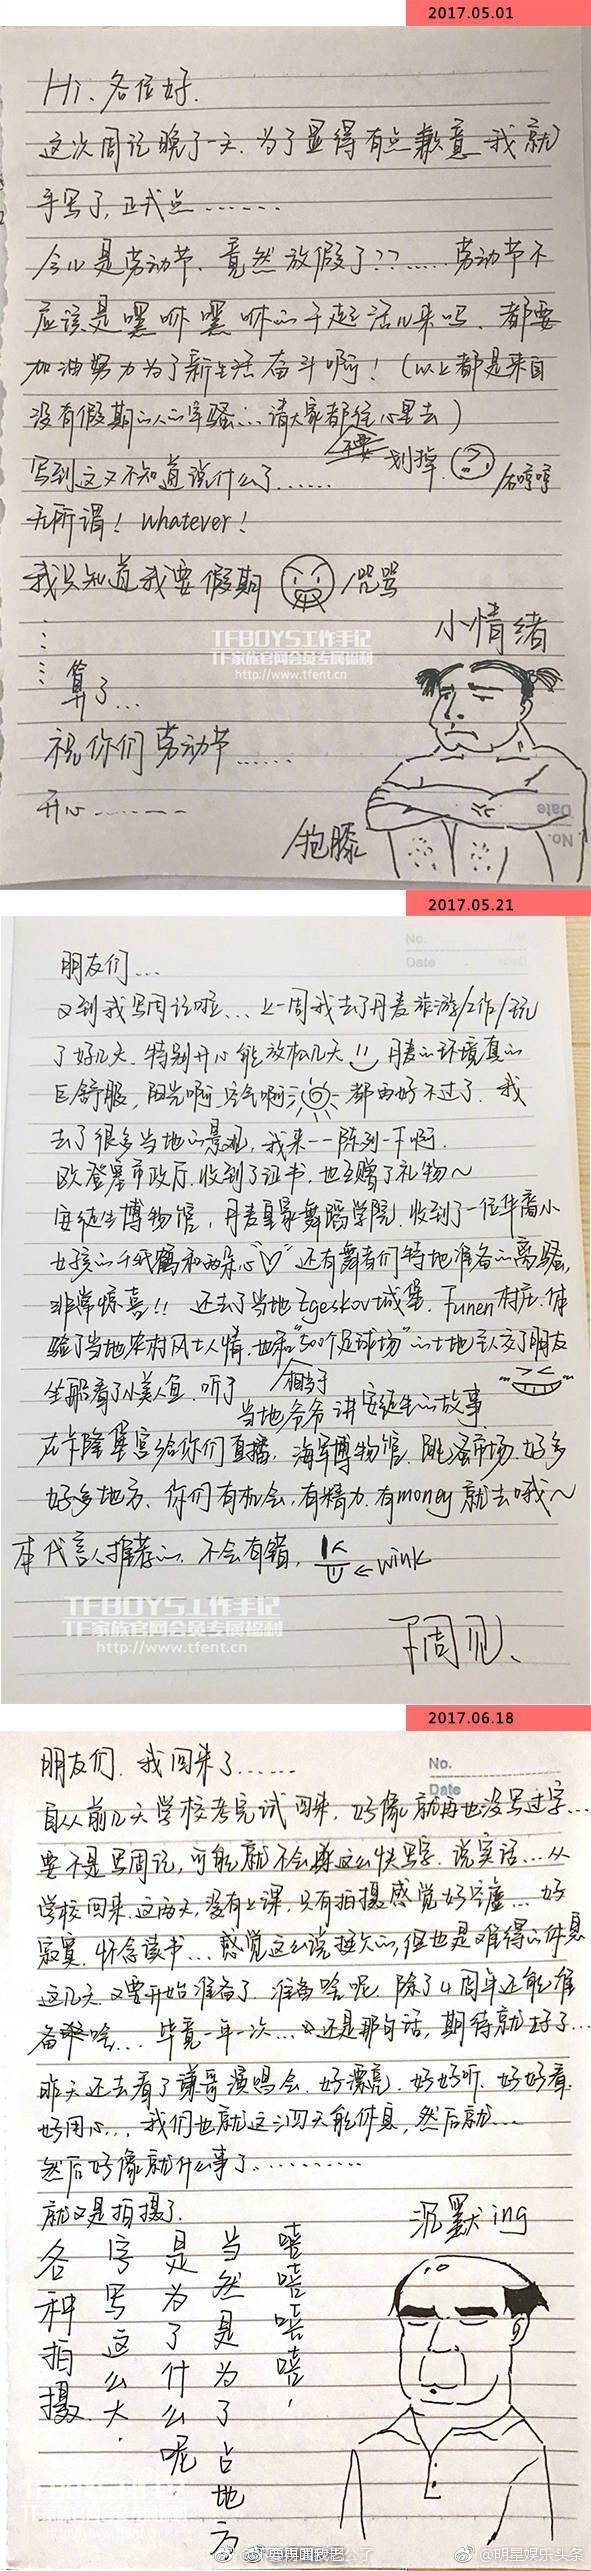 2017.05.01
Hi、各位好.
这次周记晚了一天.为了显得有点歉意 我就
手写了,正式点……
今儿是劳动节、竟然放假了??……劳动节不
应该是嘿咻嘿咻的干起活儿来吗、都要
加油努力为了新生活奋斗啊!(以上都是来自
没有假期的人的牢骚…请大家都往心里去)
不要
写到这又不知道说什么了…… 划掉. /石哼哼
无所谓! whatever!
我只知道我要假期 /咒骂
小情绪
TFBOYS工作手记
TF家族官网会员专属福利
http://www.tfent.cn
算了…
祝你们劳动节……
开心……
/抱膝
No.
Date
2017.05.21
No.
Date
朋友们…
又到我写周记啦…上一周我去了丹麦旅游/工作/玩
了好几天.特别开心能放松几天 丹麦的环境真的
巨舒服,阳光啊,空气啊 都再好不过了.我
去了很多当地的景观,我来一一陈列一下啊.
欧登塞市政厅.收到了证书.也互赠了礼物~
安徒生博物馆,丹麦皇家舞蹈学院.收到了一位华裔小
女孩的千纸鹤和两朵心"♡"还有舞者们特地准备的离骚,
非常惊喜!! 还去了当地Egeskov城堡.Funen村庄.体
验了当地农村风土人情.也和"500个足球场"的土地主人交了朋友
相当于
坐船看了小美人鱼.听了当地爷爷讲安徒生的故事.
在卡隆堡宫给你们直播.海军博物馆.跳蚤市场.好多
好多地方、你们有机会,有精力.有money就去哦~
本代言人推荐的.不会有错, ←wink
TFBOYS工作手记
TF家族官网会员专属福利
http://www.tfent.cn
下周见、
2017.06.18
No.
Date
朋友们.我回来了……
自从前几天学校考完试回来.好像就再也没写过字…
要不是写周记,可能就不会这么快写字.说实话…从
学校回来.这两天,没有上课,只有拍摄感觉好空虚…好
寂寞.怀念读书…感觉这么说挺欠的,但也是难得的休息
这几天.又要开始准备了.准备啥呢.除了4周年还能准
备啥…毕竟一年一次…还是那句话,期待就好了…
昨天还去看了谦哥演唱会.好漂亮.好好听.好好看.
好用心…我们也就这三四天能休息,然后就…
然后好像就什么事了…………
就又是拍摄了.
沉默ing
各种拍摄.
字写这么大.
是为了什么呢
当然是为了占地方
嘻嘻嘻嘻,
TFBOYS工作手记
TF家族官网会员专属福利
@明星娱乐头条